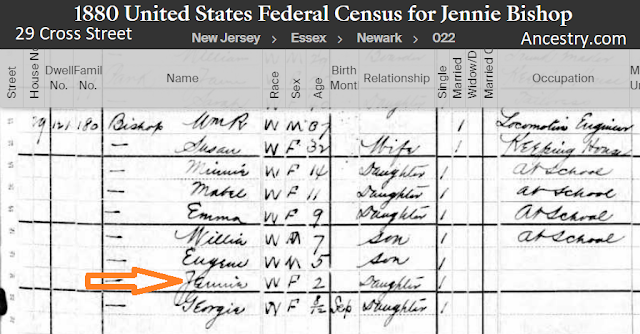 1880 United States Federal Census for Jennie Bishop
29 Cross Street New Jersey > Essex > Newark > 022 Ancestry.com
Street House No. Dwell No. Famil No. Name Race Sex Age Birth Mont Relationship Single Married Widow/D Married C Occupation M U
29 121 180 Bishop Wm R W M 37 1 Locomotive Engineer
— Susan W F 32 Wife 1 Keeping House
— Minnie W F 14 Daughter 1 At School
— Mabel W F 11 Daughter 1 At School
— Emma W F 9 Daughter 1 At School
— Willia W M 7 Son 1 At School
— Eugene W M 5 Son 1
— Jennie W F 2 Daughter 1
— Georgie W F 8/12 Sep Daughter 1